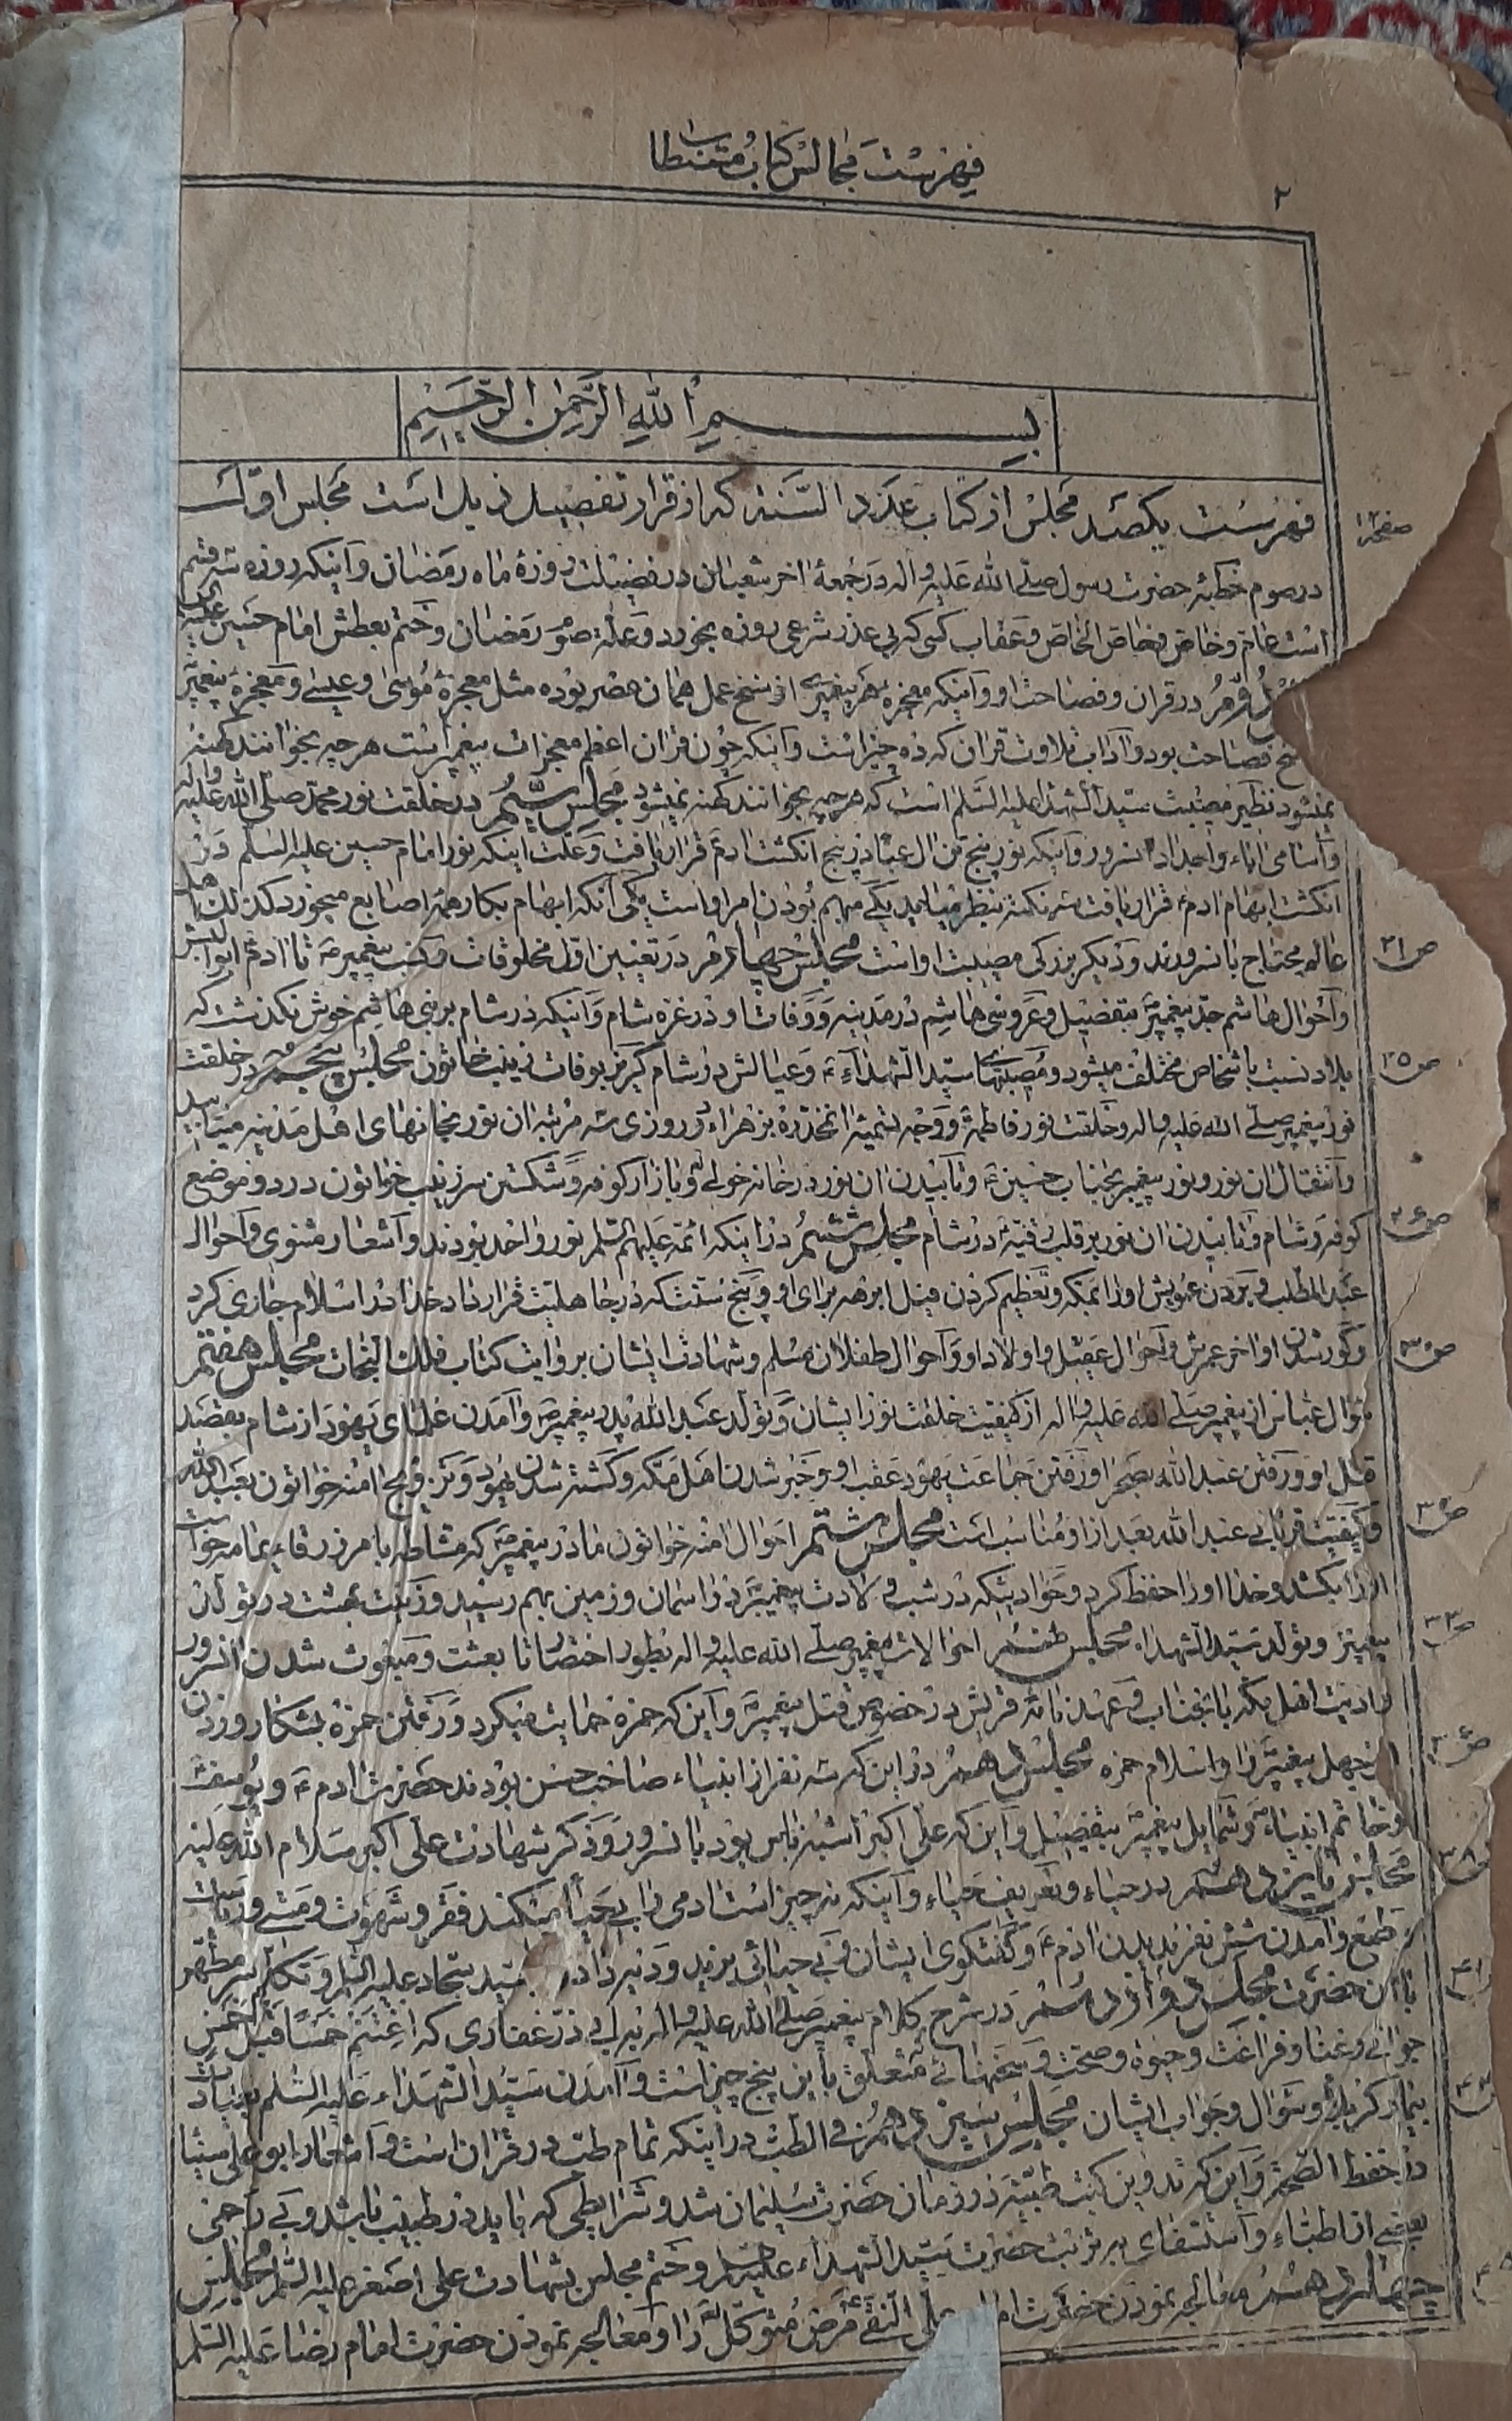 فهرست مجالس کتاب مستطاب
۲
بسم الله الرحمن الرحیم
فهرست یکصد مجلس از کتاب عدد السنة که از قرار تفصیل ذیل است مجلس اول
صفحه
در صوم خطبهٔ حضرت رسول صلی الله علیه و اله در جمعهٔ اخر شعبان در فضیلت روزهٔ ماه رمضان و اینکه روزه سه قسم
است عام و خاص و خاص الخاص و عقاب کسی که بی عذر شرعی روزه بخورد و علة صوم رمضان و ختم بعطش امام حسین علیه
در قران و فصاحت او و اینکه معجزه هر پیغمبری از سنخ عمل همان عصر بوده مثل معجزهٔ موسی و عیسی و معجزهٔ پیغمبر
فصاحت بود و آداب تلاوت قران که ده چیز است و اینکه چون قران اعظم معجزات پیغمبر است هر چه بخوانند کهنه
نمیشود نظیر مصیبت سید الشهدا علیه السلم است که هر چه بخوانند کهنه نمیشود مجلس سیم در خلقت نور محمد صلی الله علیه واله
و اسامی اباء و اجداد انسرور و اینکه نور پنج تن ال عبا در پنج انگشت ادم قرار یافت و علت اینکه نور امام حسین علیه السلم در
انگشت ابهام ادم قرار یافت سه نکته بنظر میاید یکی مبهم بودن امر او است یکی آنکه ابهام بکار همهٔ اصابع میخورد کذلک اهل
عالم محتاج بانسرورند و دیگر بزرکی مصیبت او است مجلس چهارم در تعیین اول مخلوقات و نسب پیغمبر ص تا ادم ابوالبشر
ص۲۱
و احوال هاشم جد پیغمبر بتفصیل و عروسی هاشم در مدینه و وفات او در غزه شام و اینکه در شام بر بنی هاشم خوش نکذشت که
بلاد نسبت باشخاص مختلف میشود و مصیبتهای سید الشهداء ع و عیالش در شام کریز بوفات زینب خاتون مجلس پنجم در خلقت
ص۲۵
نور پیغمبر صلی الله علیه و اله و خلقت نور فاطمه و وجه تسمیهٔ انمخدره بزهراء و روزی سه مرتبه ان نور بخانهای اهل مدینه میتابید
و انتقال ان نور و نور پیغمبر بجناب حسین ع و تابیدن ان نور در خانه خولی و بازار کوفه و شکستن سر زینب خواتون در دو موضع
کوفه و شام و تابیدن ان نور بر قلب رقیه در شام مجلس ششم در اینکه ائمه علیهم السلم نور واحد بودند و اشعار مثنوی و احوال
ص۲۶
عبد المطلب و بردن عمویش او را بمکه و تعظیم کردن فیل ابرهه برای او و پنج سنت که در جاهلیت قرار داد خدا در اسلام جاری کرد
و کور شدن او اخر عمرش و احوال عقیل و اولاد او و احوال طفلان مسلم و شهادت ایشان بروایت کتاب فلک النجات مجلس هفتم
ص۳۰
سؤال عباس از پیغمبر صلی الله علیه و اله از کیفیت خلقت نور ایشان و تولد عبد الله پدر پیغمبر ص و آمدن علمای یهود از شام بقصد
قتل او و رفتن عبد الله بصحرا و رفتن جماعت یهود عقب او و خبر شدن اهل مکه و کشته شدن یهود و تزویج امنه خواتون بعبد الله
و کیفیت قربانی عبد الله بعد از او مناسب است مجلس هشتم احوال امنه خواتون مادر پیغمبر ص که مشاطه بامر زرقاء یمامه خواست
او را بکشد و خدا او را حفظ کرد و حوادثیکه در شب ولادت پیغمبر در اسمان و زمین بهم رسید و زینت بهشت در تولد
پیغمبر و تولد سید الشهداء مجلس نهم احوالات پیغمبر صلی الله علیه و اله بطور اختصار تا بعثت و مبعوث شدن انسرور
ص۳۳
و اذیت اهل مکه باانجناب و عهدنامهٔ قریش در خصوص قتل پیغمبر و این که حمزه حمایت میکرد و رفتن حمزه بشکار و زدن
ابوجهل پیغمبر را و اسلام حمزه مجلس دهم در این که سه نفر از انبیاء صاحب حسن بودند حضرت ادم ع و یوسف
و خاتم انبیاء و شمایل پیغمبر بتفصیل و این که علی اکبر اشبه ناس بود بانسرور و ذکر شهادت علی اکبر سلام الله علیه
مجلس یازدهم در حیاء و تعریف حیاء و اینکه سه چیز است ادمی را بیحیا میکند فقر و شهوت و مستی و ریاست
ص۳۸
و طمع و آمدن شش نفر نزد پدرمان ادم ع و گفتگوی ایشان و بی حیائی یزید و سید سجاد علیه السلم و تکلم سر مطهر
با ان حضرت مجلس دوازدهم در شرح کلام پیغمبر صلی الله علیه و اله به ابی ذر غفاری که اغتنم خمسا قبل خمس
ص۴۱
جوانی و غنا و فراغت و حیوة و صحت و سخنهائی متعلق باین پنج چیز است و آمدن سید الشهداء علیه السلم بعیادت
بیمار کربلا و سؤال و جواب ایشان مجلس سیزدهم فی الطب در اینکه تمام طب در قران است و اشعار ابو علی سینا
ص۴۳
در حفظ الصحة و این که تدوین کتب طبیه در زمان حضرت سلیمان شد و شرایطی که باید در طبیب باشد و بی رحمی
بعضی از اطباء و استشفای به تربت حضرت سید الشهداء علیه السلم و ختم مجلس بشهادت علی اصغر علیه السلم مجلس
چهاردهم معالجه نمودن حضرت امام علی النقی مرض متوکل را و معالجه نمودن حضرت امام رضا علیه السلم